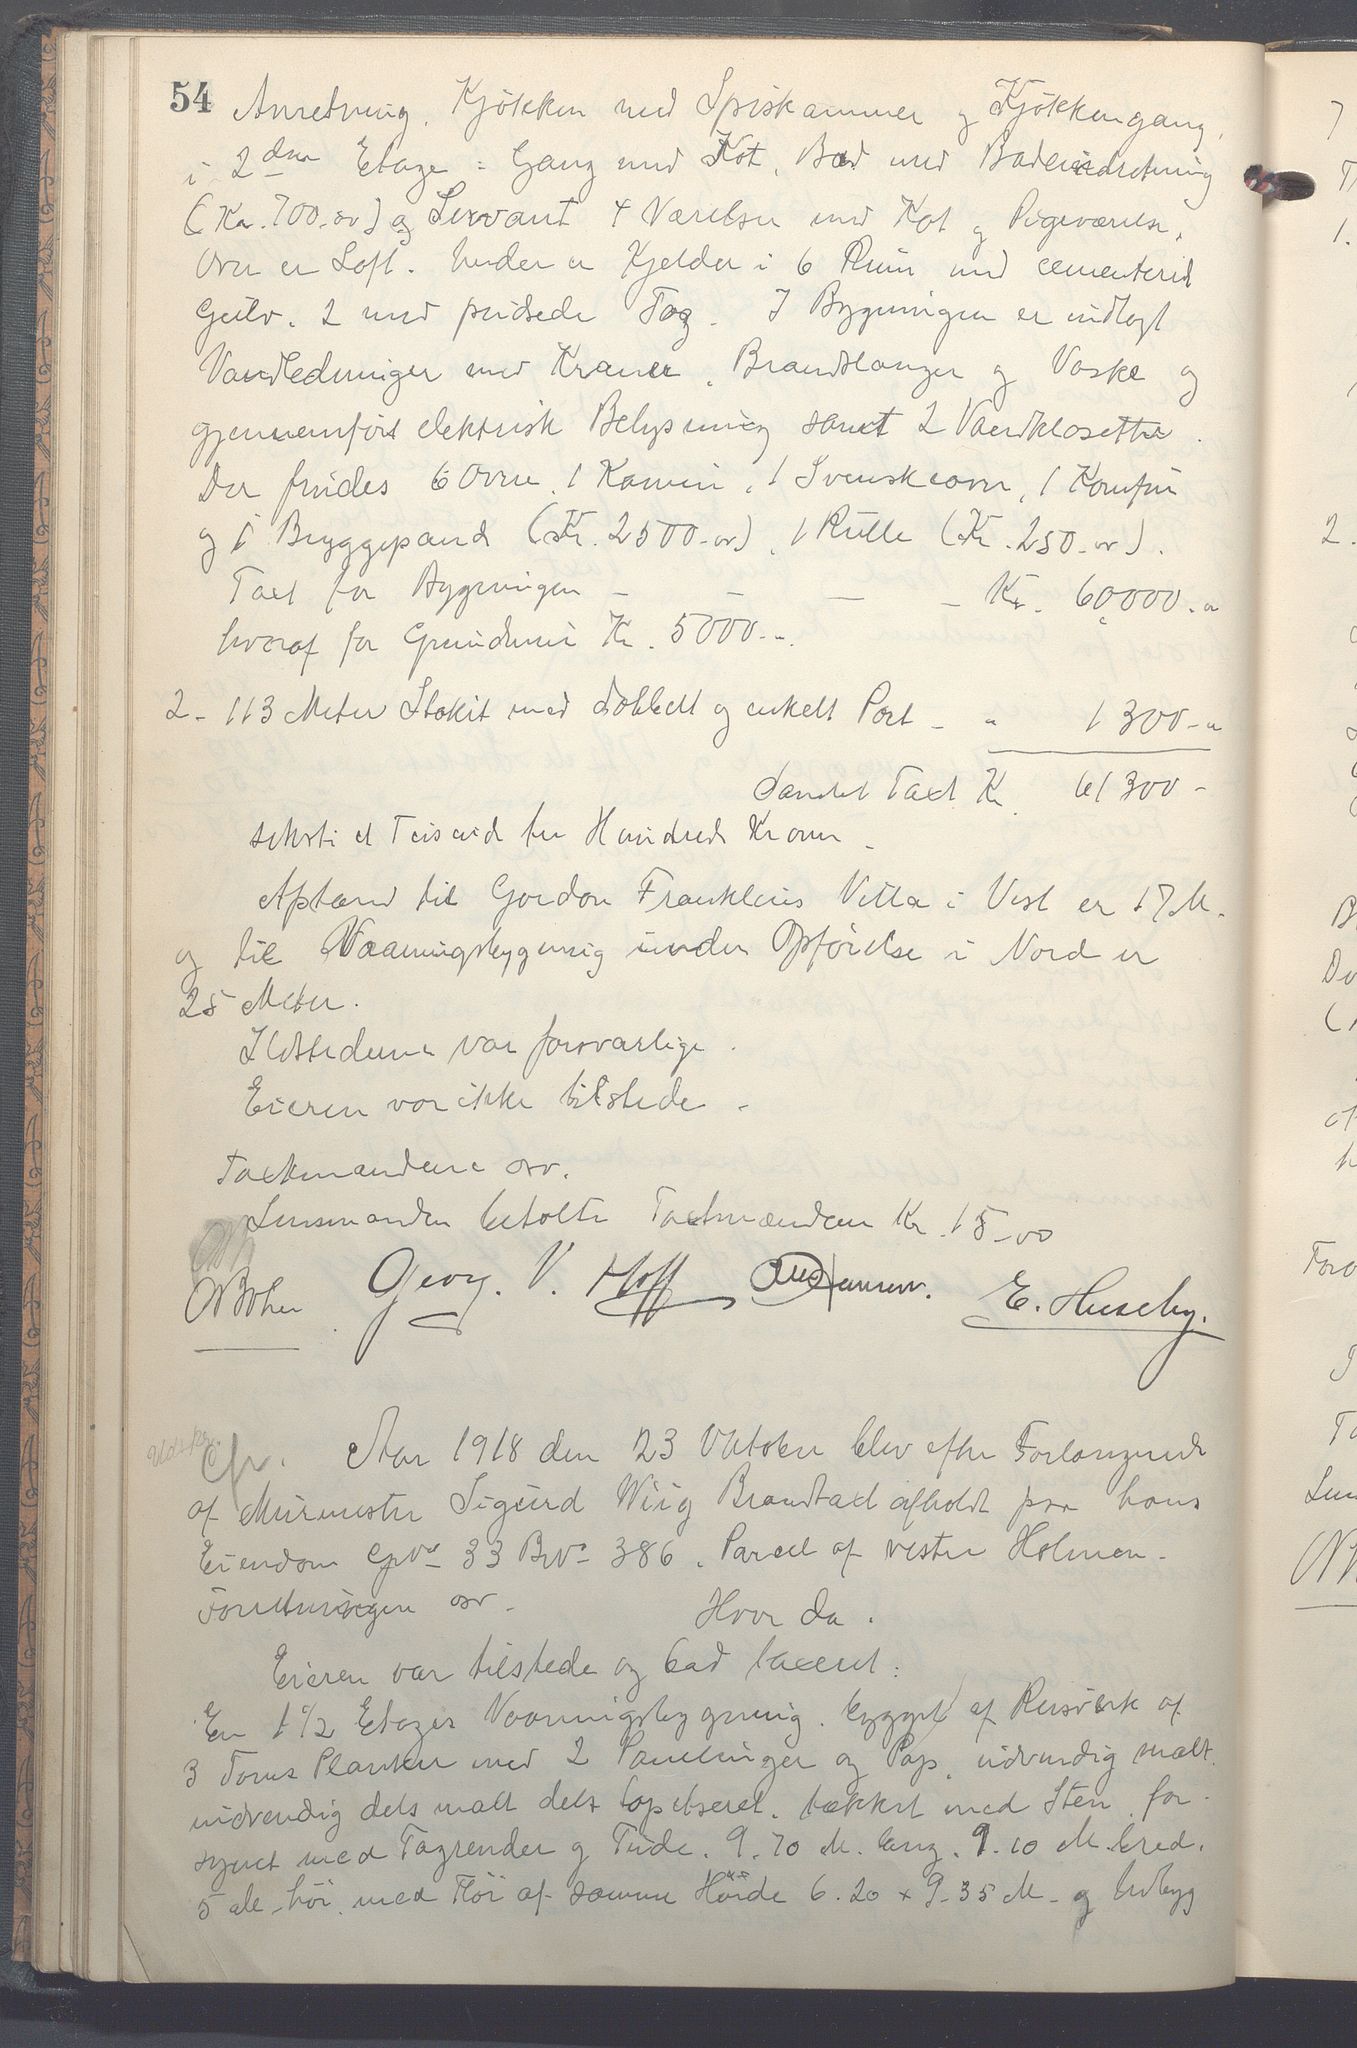 54
Anretning, Kjøkken med Spiskammer og Kjøkkengang,
i 2den Etage = Gang med Kot, Bad med Badeindretning
(Kr. 700.00) og Servant 4 Værelser med Kot og Pigeværelse,
Over er Loft. Under er Kjelder i 6 Rum med cementerede
Gulv. 2 med pudsede Tag. I Bygningen er indlagt
Vandledninger med Kraner, Brandslanger og Vaske og
gjennemført elektrisk Belysning samt 2 Vandklosetter.
Der findes 6 Ovne, 1 Kamin, 1 Svenskeovn, 1 Komfur
og 1 Bryggepande (Kr. 2500-00), 1 Rulle (Kr. 250-00).
Taxt for Bygningen - - - - Kr. 60,000.-
hvoraf for Grundmur Kr. 5000.-
2 - 113 Meter Stakit med dobbelt og enkelt Port - " 1300-"
Samlet Taxt Kr 61300 -
seksti et Tusend tre Hundrede Kroner -
Afstand til Gordon Franklins Villa i Vest er 17 M.
og til Vaaningsbygning under Opførelse i Nord er
25 Meter.
Ildstederne var forsvarlige.
Eieren var ikke tilstede -
Taxtmændene osv.
Lensmanden betalte Taxtmændene Kr. 15-00
Georg. V. Hoff E. Huseby.
Udskr.
Aar 1918 den 23 Oktober blev efter Forlangende
af Murmester Sigurd Wiig Brandtaxt afholdt paa hans
Eiendom Gno 33 Bno 386, Parcel af vestre Holmen -
Forretningen osv. Hvor da.
Eieren var tilstede og bad taxeret:
En 1 1/2 Etages Vaaningsbygning, bygget af Reisverk af
3 Toms Planker med 2 Panelinger og Pap, udvendig malt
indvendig dels malt dels tapetseret, tækket med Sten, for-
synet med Tagrender og Tude. 9.70 M. lang, 9.10 M. bred,
5 M. høi, med Fløi af samme Høide 6.20 x 9.35 M - og Udbyg